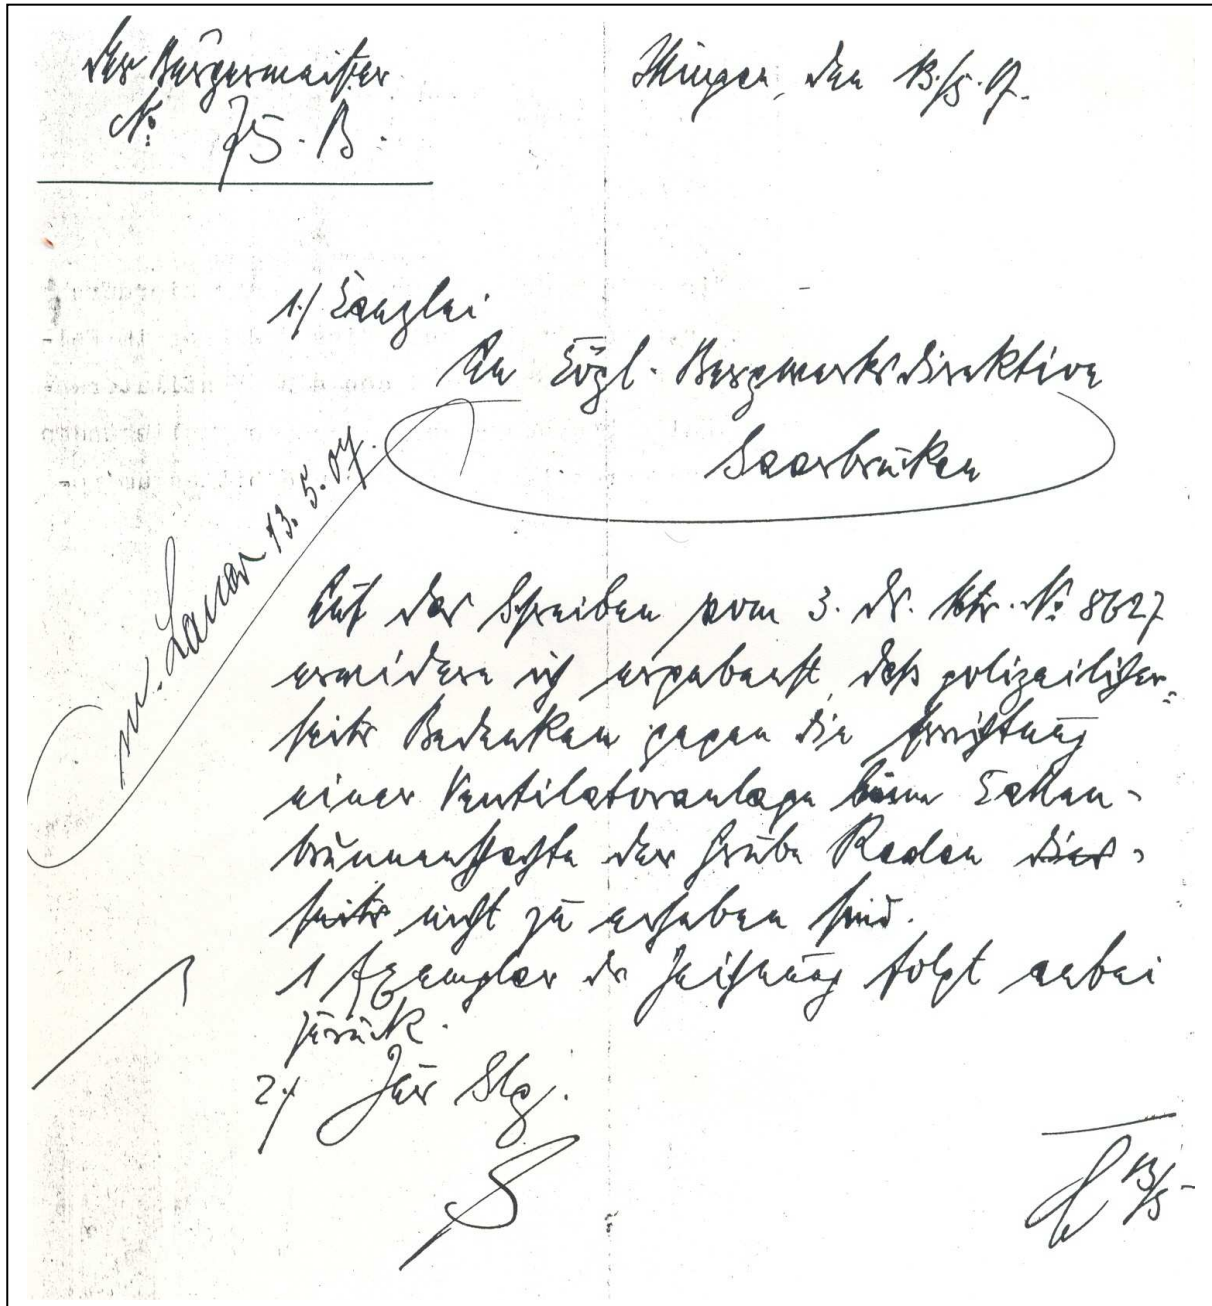 Der Bürgermeister
No. 75. B.
Illingen, den 13./5. 07.
1./ Kanzlei
An Kögl. Bergwerksdirektion
Saarbrücken
13. 5. 07.
Auf das Schreiben vom 3. ds. Mts. No. 8627
erwidere ich ergebenst, daß polizeilicher=
seits Bedenken gegen die Errichtung
einer Ventilatoranlage beim Kallen-
brunnenschachte der Grube Reden dies-
seits nicht zu erheben sind.
1 Exemplar der Zeichnung folgt anbei
zurück.
2./ Zur Slg.
13/5